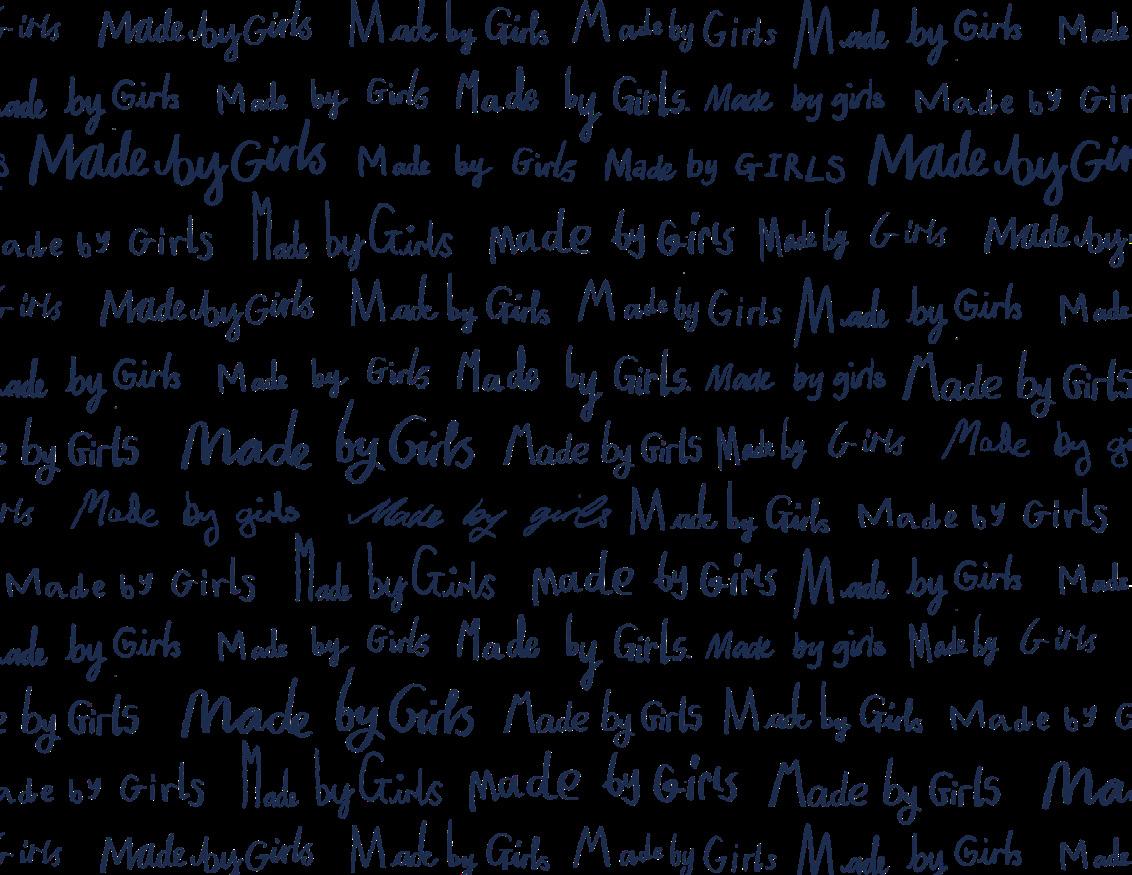 Girls Made by Girls Made by Girls Made by Girls Made by Girls Made
Made by Girls Made by Girls Made by Girls. Made by girls Made by Gir
s Made by Girls Made by Girls Made by GIRLS Made by Gir
ade by Girls Made by Girls made by Girls Made by Girls Made by
Girls Made by Girls Made by Girls Made by Girls Made by Girls Made
ade by Girls Made by Girls Made by Girls. Made by girls Made by Girls
e by Girls Made by Girls Made by Girls Made by Girls Made by gi
rls Made by girls Made by girls Made by Girls Made by Girls
Made by Girls Made by Girls made by Girls Made by Girls Made
ade by Girls Made by Girls Made by Girls. Made by girls Made by Girls
e by Girls Made by Girls Made by Girls Made by Girls Made by G
ade by Girls Made by Girls made by Girls Made by Girls Ma
Girls Made by Girls Made by Girls Made by Girls Made by Girls Made